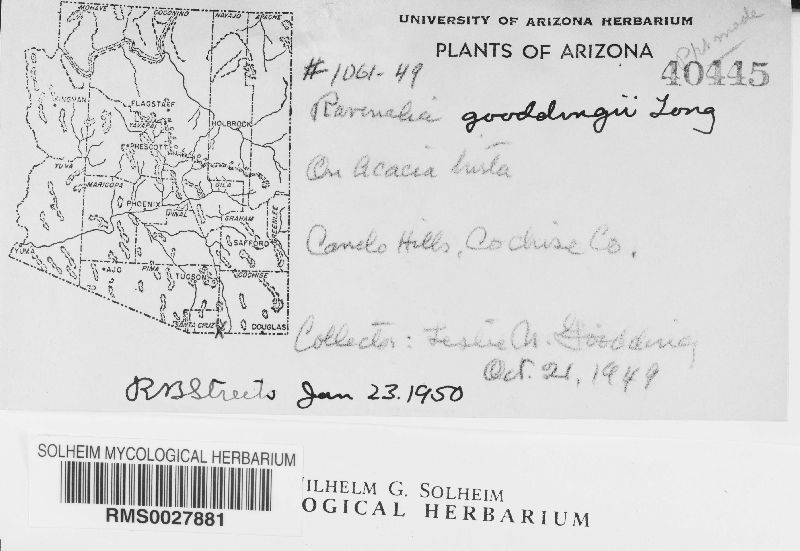 UNIVERSITY OF ARIZONA HERBARIUM
PLANTS OF ARIZONA
made
40445
#1061-49
Ravenelia gooddingii Long
On Acacia hirta
Canelo Hills, Cochise Co.
Collector: Leslie N. Goodding
Oct. 21, 1949
RBStreets Jan 23.1950
MOHAVE
COCONINO
NAVAJO
APACHE
KINGMAN
FLAGSTAFF
YAVAPAI
HOLBROOK
PRESCOTT
YUMA
MARICOPA
GILA
PHOENIX
PINAL
GRAHAM
GREENLEE
YUMA
SAFFORD
AJO
PIMA
TUCSON
COCHISE
SANTA CRUZ
DOUGLAS
SOLHEIM MYCOLOGICAL HERBARIUM
RMS0027881
ILHELM G. SOLHEIM
OGICAL HERBARIUM